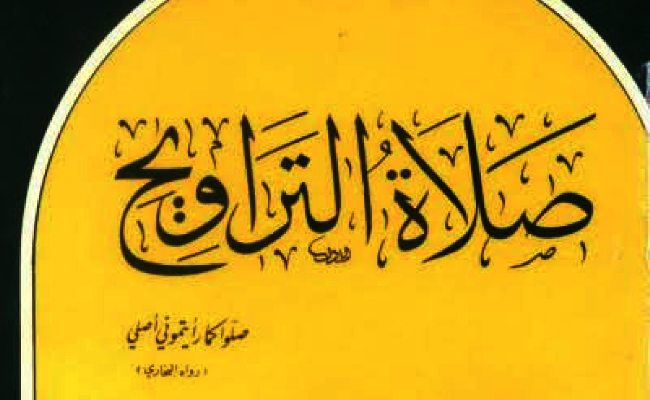 صَلَاةُ التَّرَاوِيحِ
صلّوا كما رأيتموني أصلي
(رواه البخاري)